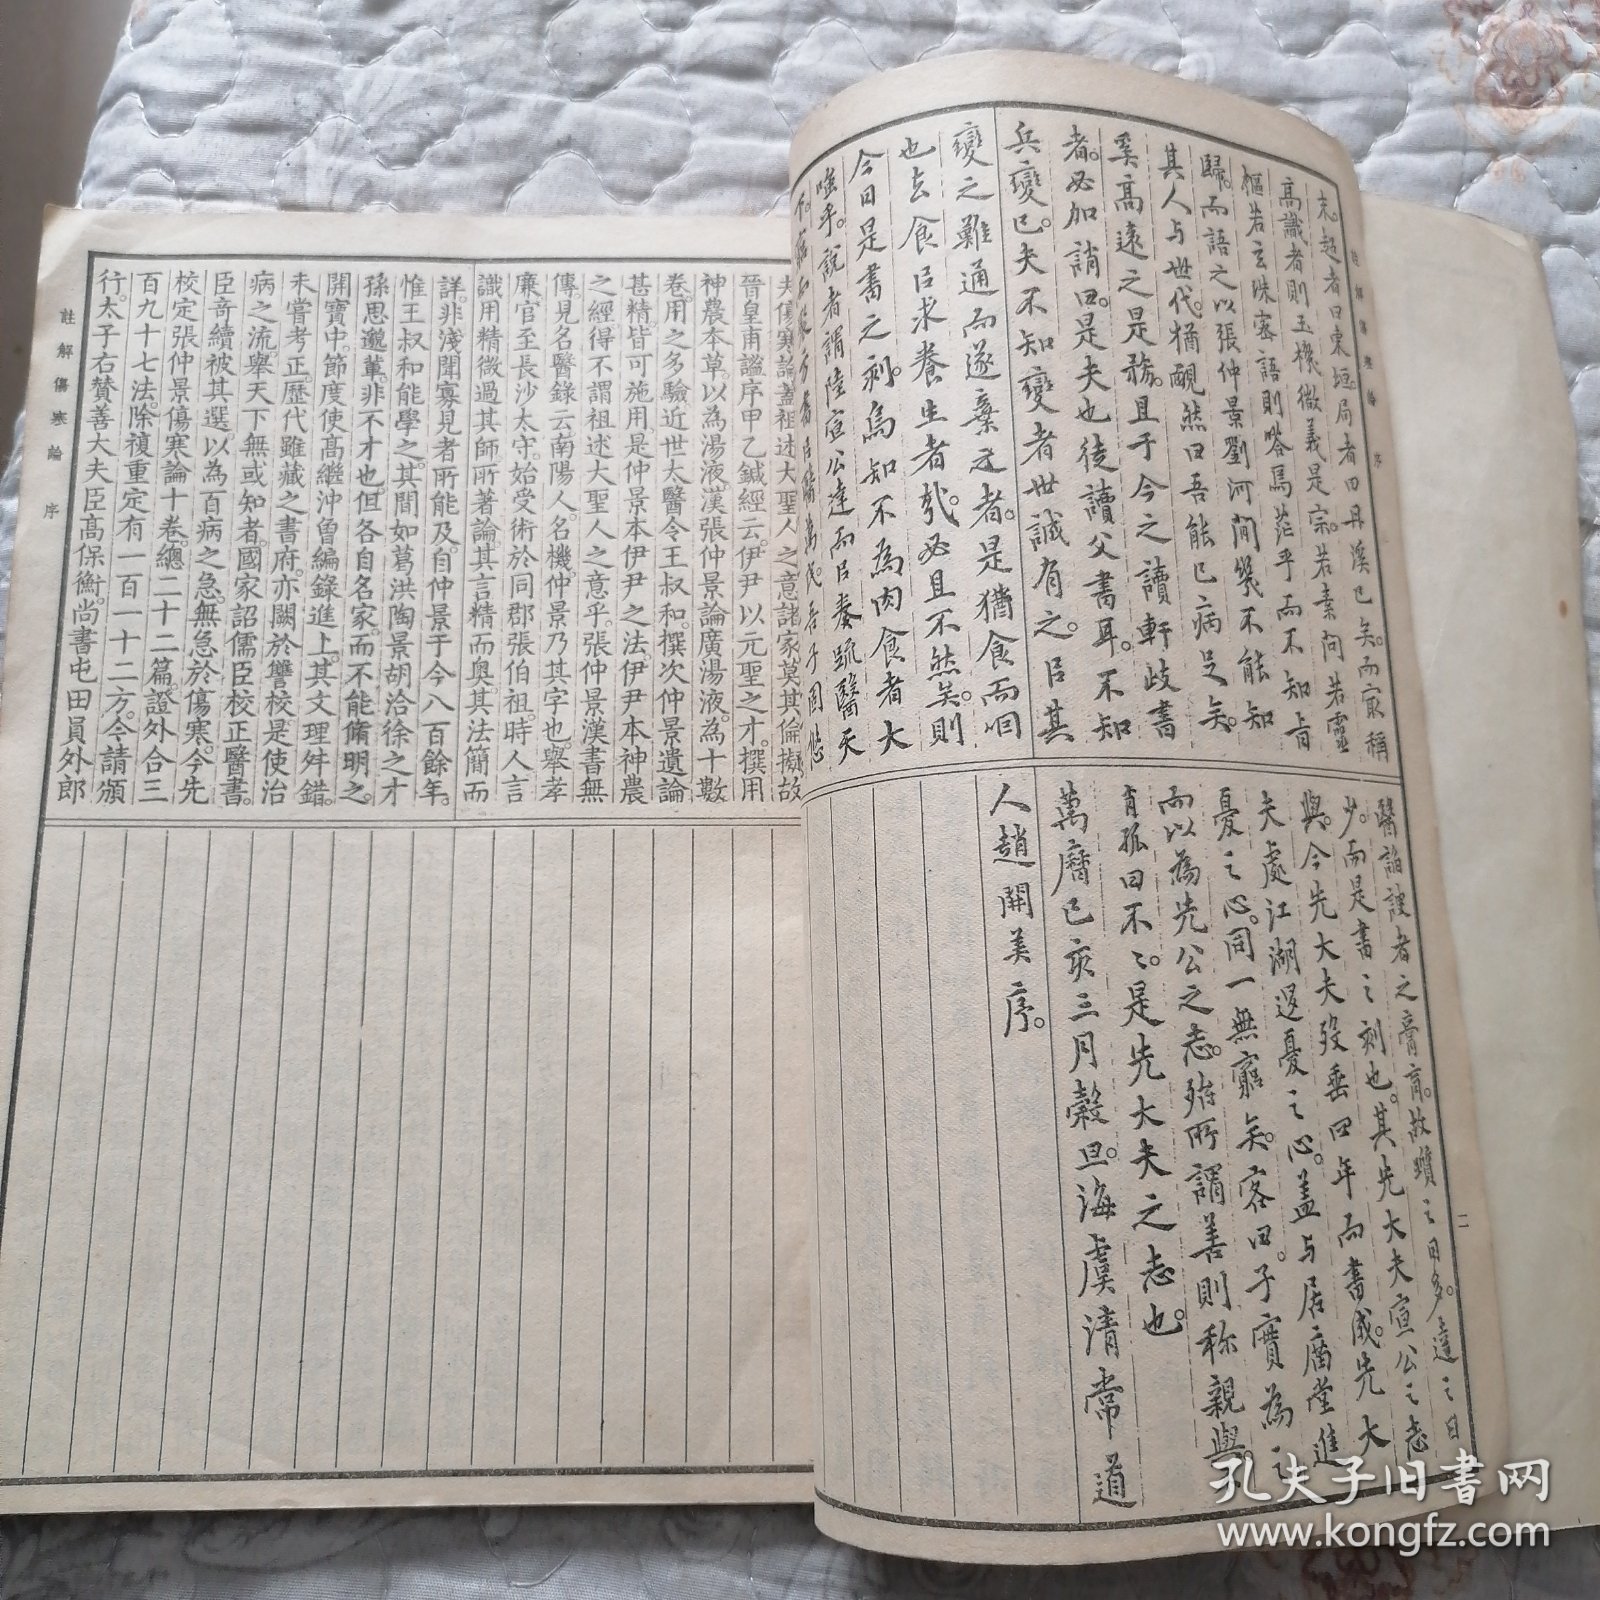 註解傷寒論 序
二
末。趨者曰東垣。局者曰丹溪已矣。而最稱
高識者則玉機微義是宗。若素問若靈
樞若玄珠密語則嗒焉茫乎而不知旨
歸。而語之以張仲景劉河間幾不能知
其人与世代。猶靦然曰吾能已病足矣。
奚高遠之是務。且于今之讀軒岐書
者。必加誚曰。是夫也徒讀父書耳。不知
兵變已。夫不知變者世誠有之。㠯其
變之難通而遂棄之者。是猶食而咽
也去食㠯求養生者哉。必且不然矣。則
今日是書之刻。烏知不為肉食者大
嗤乎。說者謂陸宣公達而㠯奏疏醫天
醫諂諛者之膏肓。故
少。而是書之刻也。其先大夫宣公之志
與。今先大夫歿垂四年而書成。先大
夫處江湖退憂之心。蓋与居廟堂進
憂之心。同一無窮矣。客曰。子實為之
而以為先公之志。殆所謂善則称親與。
肖孤曰不不。是先大夫之志也。
萬曆己亥三月穀旦。海虞清常道
人趙開美序。
夫傷寒論蓋祖述大聖人之意諸家莫其倫擬故
晉皇甫謐序甲乙鍼經云。伊尹以元聖之才。撰用
神農本草。以為湯液。漢張仲景論廣湯液。為十數
卷。用之多驗。近世太醫令王叔和。撰次仲景遺論
甚精。皆可施用。是仲景本伊尹之法。伊尹本神農
之經。得不謂祖述大聖人之意乎。張仲景漢書無
傳。見名醫錄云。南陽人。名機。仲景乃其字也。舉孝
廉官至長沙太守。始受術於同郡張伯祖。時人言
識用精微過其師所著論。其言精而奧。其法簡而
詳。非淺聞寡見者所能及。自仲景于今八百餘年。
惟王叔和能學之。其間如葛洪陶景胡洽徐之才
孫思邈輩。非不才也。但各自名家。而不能脩明之。
開寶中。節度使高繼沖曾編錄進上。其文理舛錯。
未嘗考正。歷代雖藏之書府。亦闕於讐校。是使治
病之流。舉天下無或知者。國家詔儒臣校正醫書。
臣奇續被其選。以為百病之急。無急於傷寒。今先
校定張仲景傷寒論十卷。總二十二篇。證外合三
百九十七法。除複重定有一百一十二方。今請頒
行。太子右贊善大夫臣高保衡。尚書屯田員外郎
註解傷寒論 序
孔夫子旧书网
www.kongfz.com